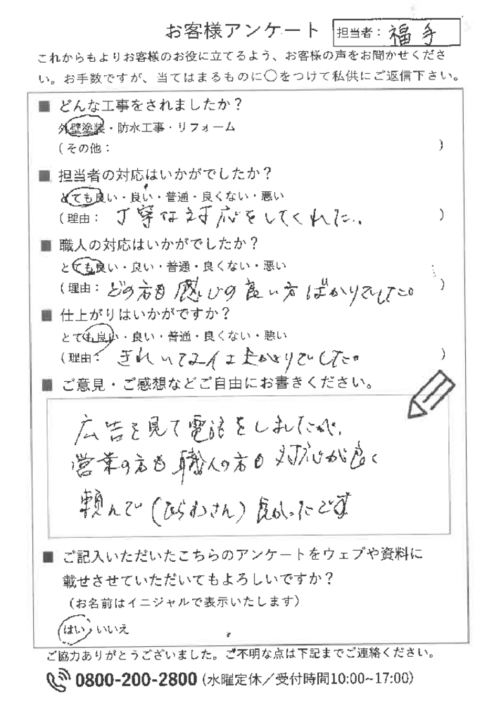 お客様アンケート
担当者： 福手
これからもよりお客様のお役に立てるよう、お客様の声をお聞かせくださ
い。お手数ですが、当てはまるものに○をつけて私供にご返信下さい。
■ どんな工事をされましたか？
外壁塗装・防水工事・リフォーム
（その他： ）
■ 担当者の対応はいかがでしたか？
とても良い・良い・普通・良くない・悪い
（理由： 丁寧な対応をしてくれた。 ）
■ 職人の対応はいかがでしたか？
とても良い・良い・普通・良くない・悪い
（理由： どの方も感じの良い方ばかりでした。 ）
■ 仕上がりはいかがですか？
とても良い・良い・普通・良くない・悪い
（理由： きれいな仕上がりでした。 ）
■ ご意見・ご感想などご自由にお書きください。
広告を見て電話をしましたが、
営業の方も職人の方も対応が良く
頼んで（さん）良かったです
■ ご記入いただいたこちらのアンケートをウェブや資料に
載せさせていただいてもよろしいですか？
（お名前はイニジャルで表示いたします）
はい・いいえ
ご協力ありがとうございました。ご不明な点は下記までご連絡ください。
0800-200-2800（水曜定休／受付時間10:00~17:00）